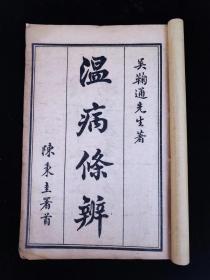 吳鞠通先生著
温病條辨
陳秉圭署首